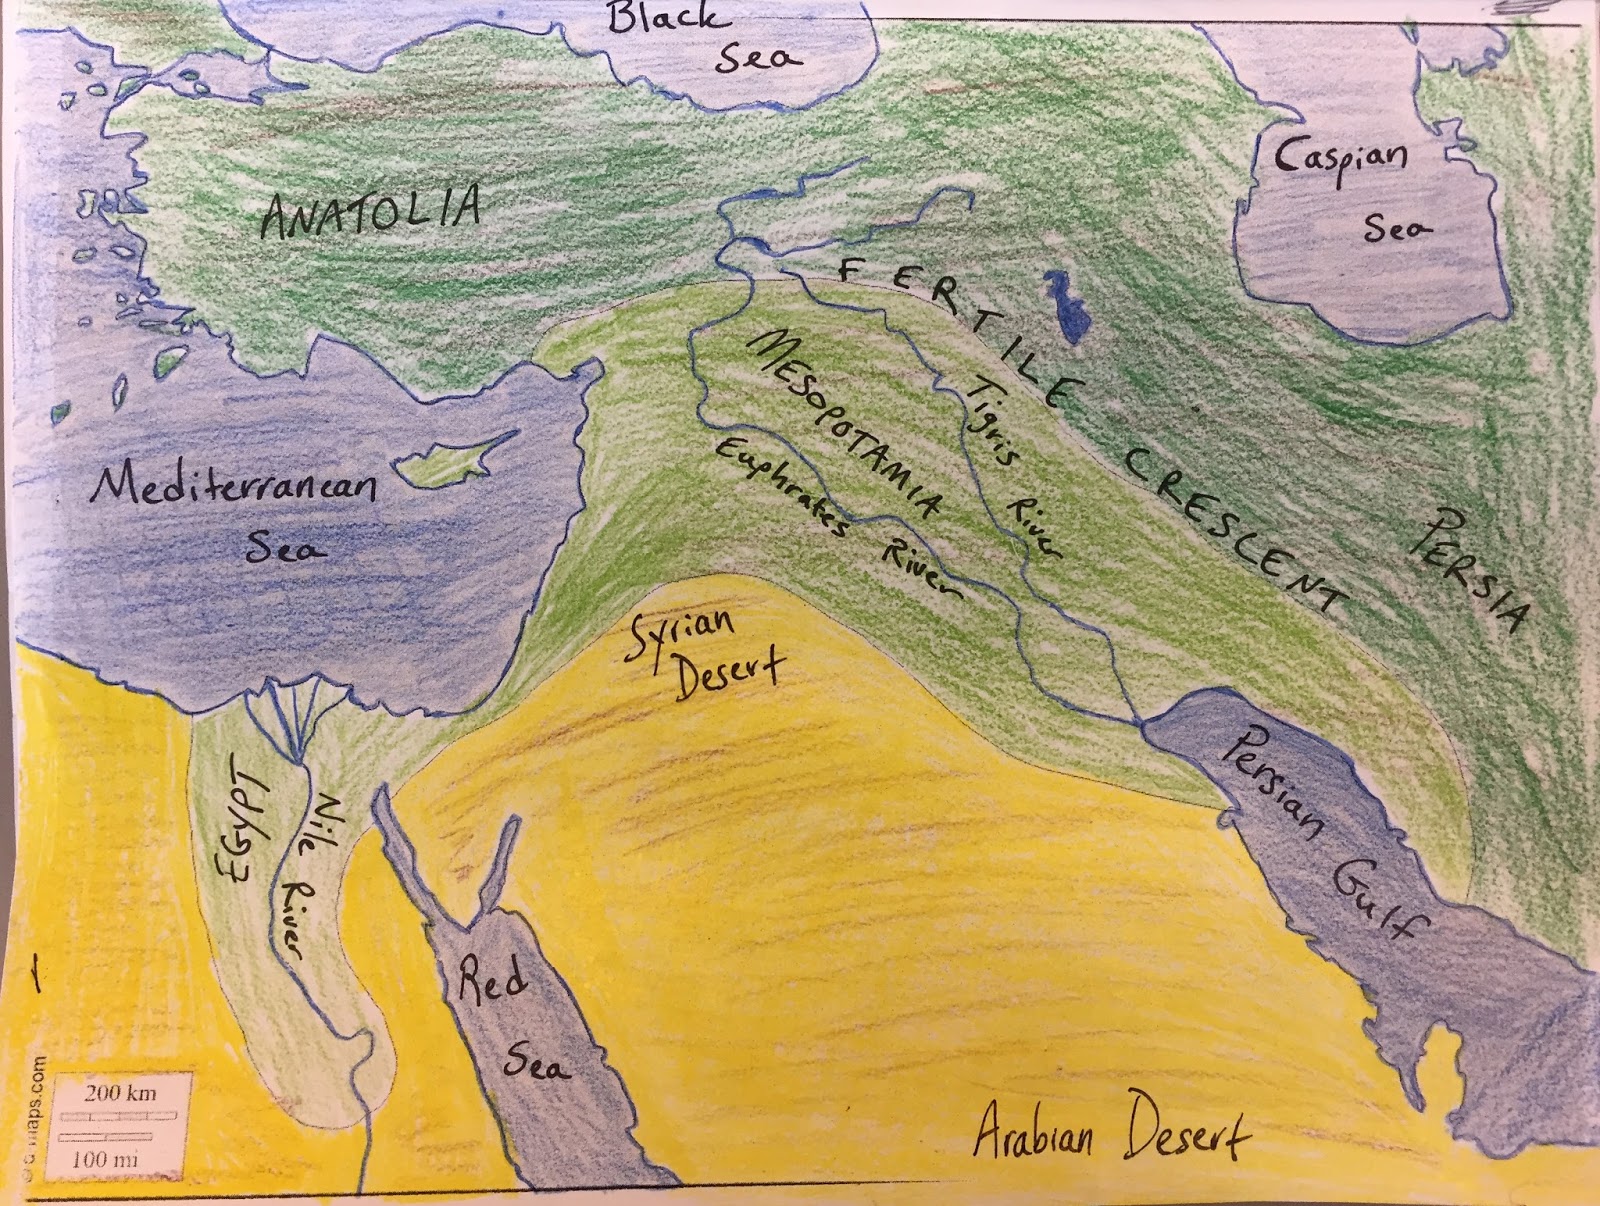 Black
Sea
Caspian
Sea
ANATOLIA
FERTILE CRESCENT
MESOPOTAMIA
Tigris River
Euphrates River
PERSIA
Mediterranean
Sea
Syrian
Desert
Persian Gulf
EGYPT
Nile River
Red
Sea
Arabian Desert
maps.com
200 km
100 mi